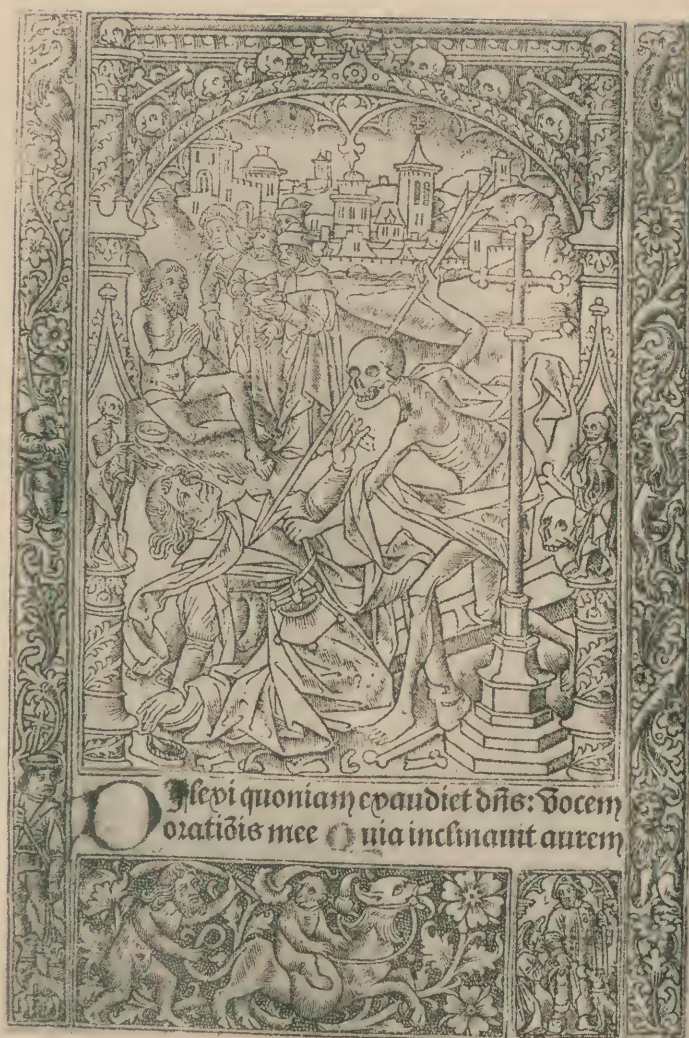 DIlexi quoniam exaudiet dñs: vocem
oratiõis mee Quia inclinauit aurem